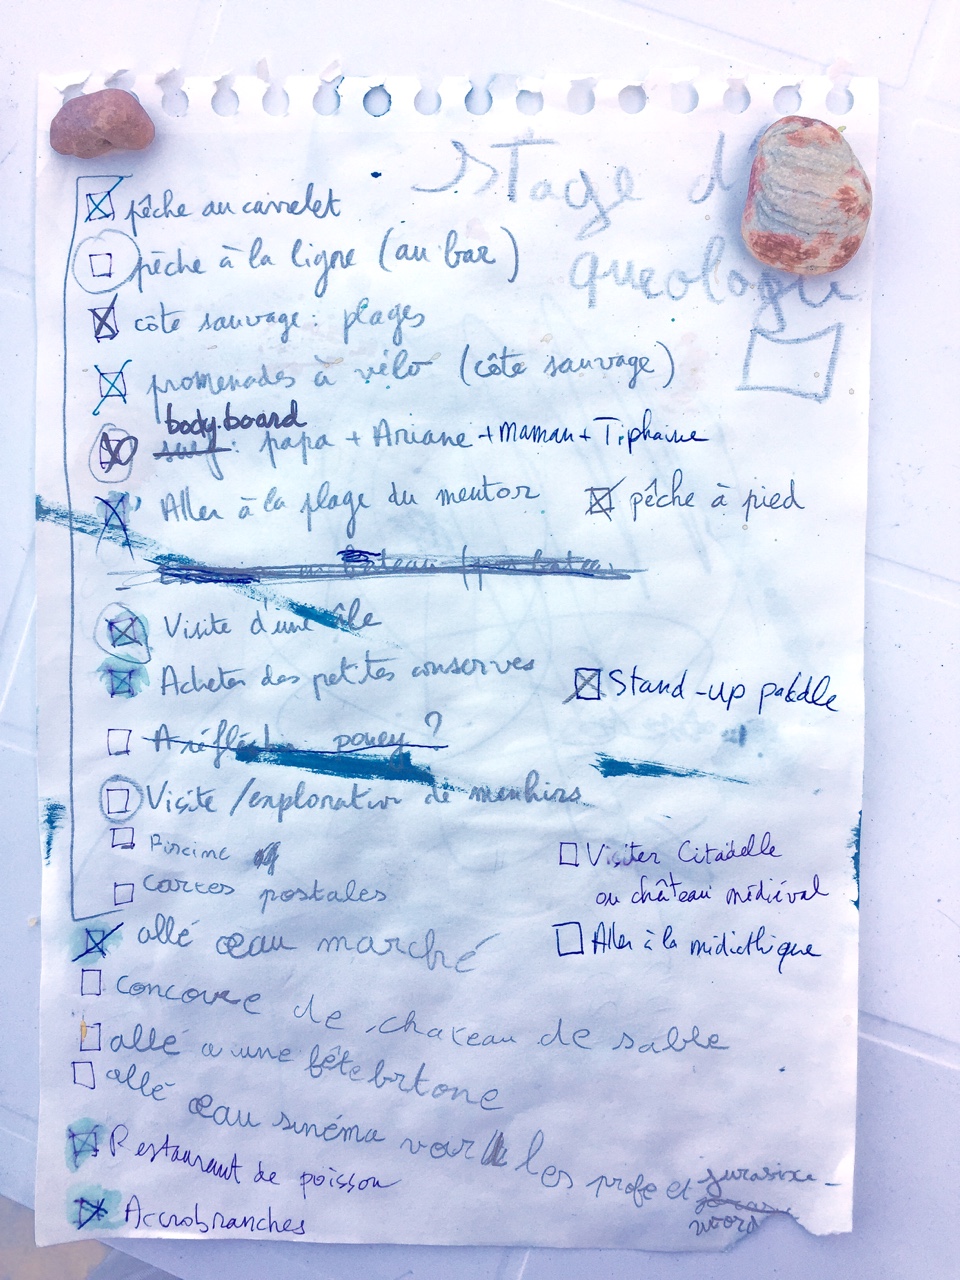 Stage d
queologu
pêche au carrelet
pêche à la ligne (au bar)
côte sauvage : plages
promenades à vélo (côte sauvage)
body-board
surf : papa + Ariane + Maman + Tiphaine
Aller à la plage du mentor
pêche à pied
bateau
Visite d'une île
Acheter des petites conserves
Stand-up paddle
A réfléchir poney ?
Visite /exploration de menhirs
Piscine
cartes postales
Visiter Citadelle
ou château médiéval
Aller à la médiathèque
allé au marché
concoure de chateau de sable
allé a une fête brtone
allé au sinéma voir les profe et jurasixe-
woord
Restaurant de poisson
Accrobranches